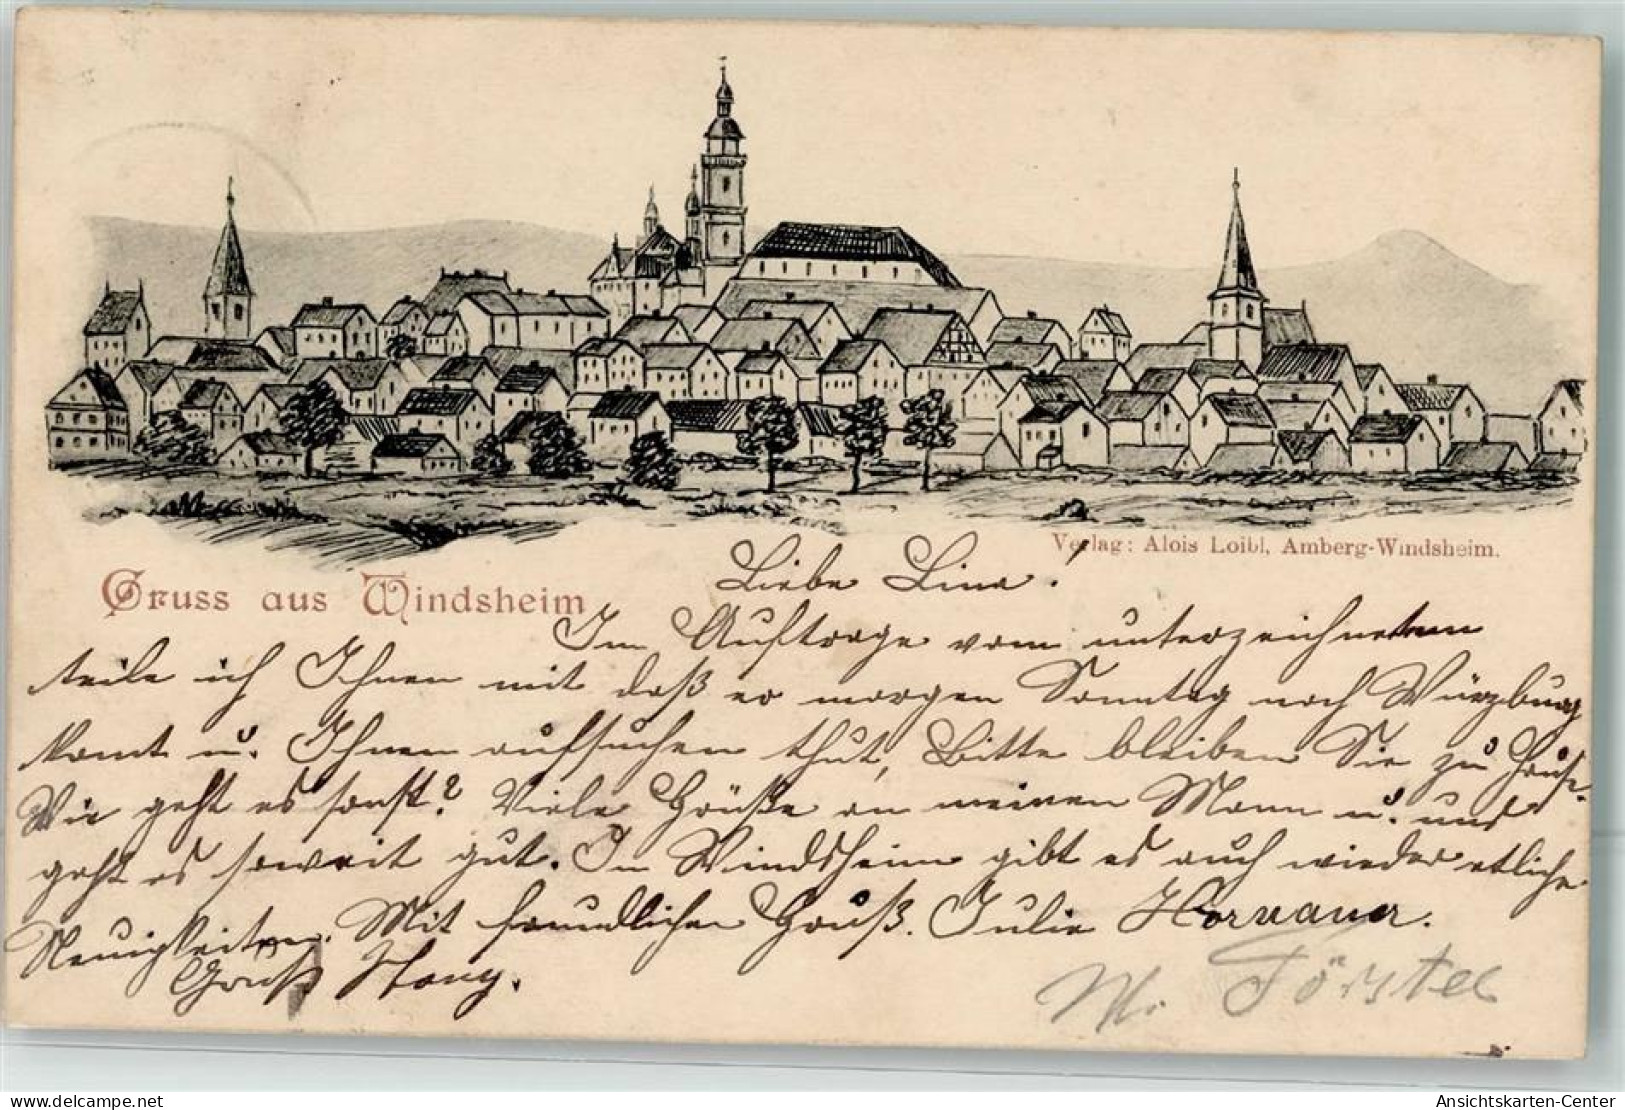 Verlag: Alois Loibl, Amberg-Windsheim.
Gruss aus Windsheim
Liebe Lina.
Im Auftrage vom unterzeichneten
teile ich Ihnen mit daß er morgen Sonntag nach Würzburg
komt u. Ihnen aufsuchen thut, Bitte bleiben Sie zu Hause.
Wie geht es sonst? Viele Grüße an meinen Mann u. uns
geht es soweit gut. In Windsheim gibt es auch wieder etliche
Neuigkeiten. Mit freundlichen Gruß. Julie Hornauer.
Gruß
M. Förstel
delcampe.net
Ansichtskarten-Center